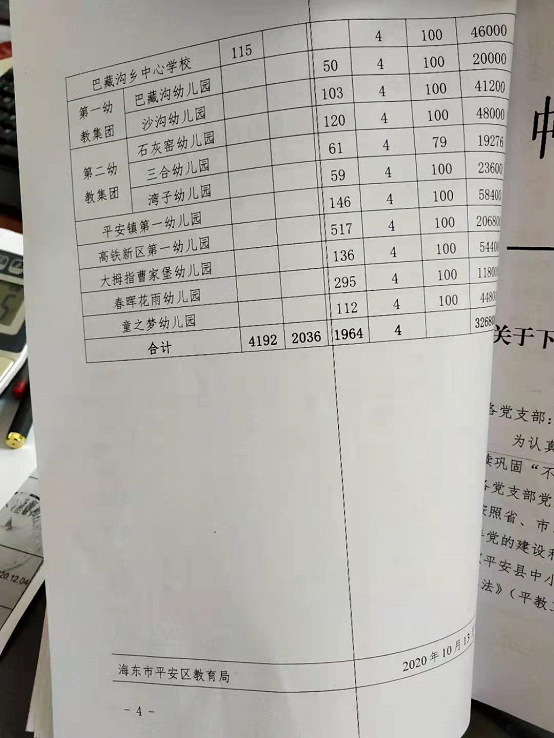 巴藏沟乡中心学校 115 4 100 46000
第一幼教集团 巴藏沟幼儿园 50 4 100 20000
沙沟幼儿园 103 4 100 41200
石灰窑幼儿园 120 4 100 48000
第二幼教集团 三合幼儿园 61 4 79 19276
湾子幼儿园 59 4 100 23600
平安镇第一幼儿园 146 4 100 58400
高铁新区第一幼儿园 517 4 100 206800
大拇指曹家堡幼儿园 136 4 100 54400
春晖花雨幼儿园 295 4 100 118000
童之梦幼儿园 112 4 100 44800
合计 4192 2036 1964 4
海东市平安区教育局 2020年10月13
- 4 -
关于下
各党支部:
为认真
续巩固“不
各党支部党
按照省、市
党的建设和
平安县中小
法》(平教
20.12.04